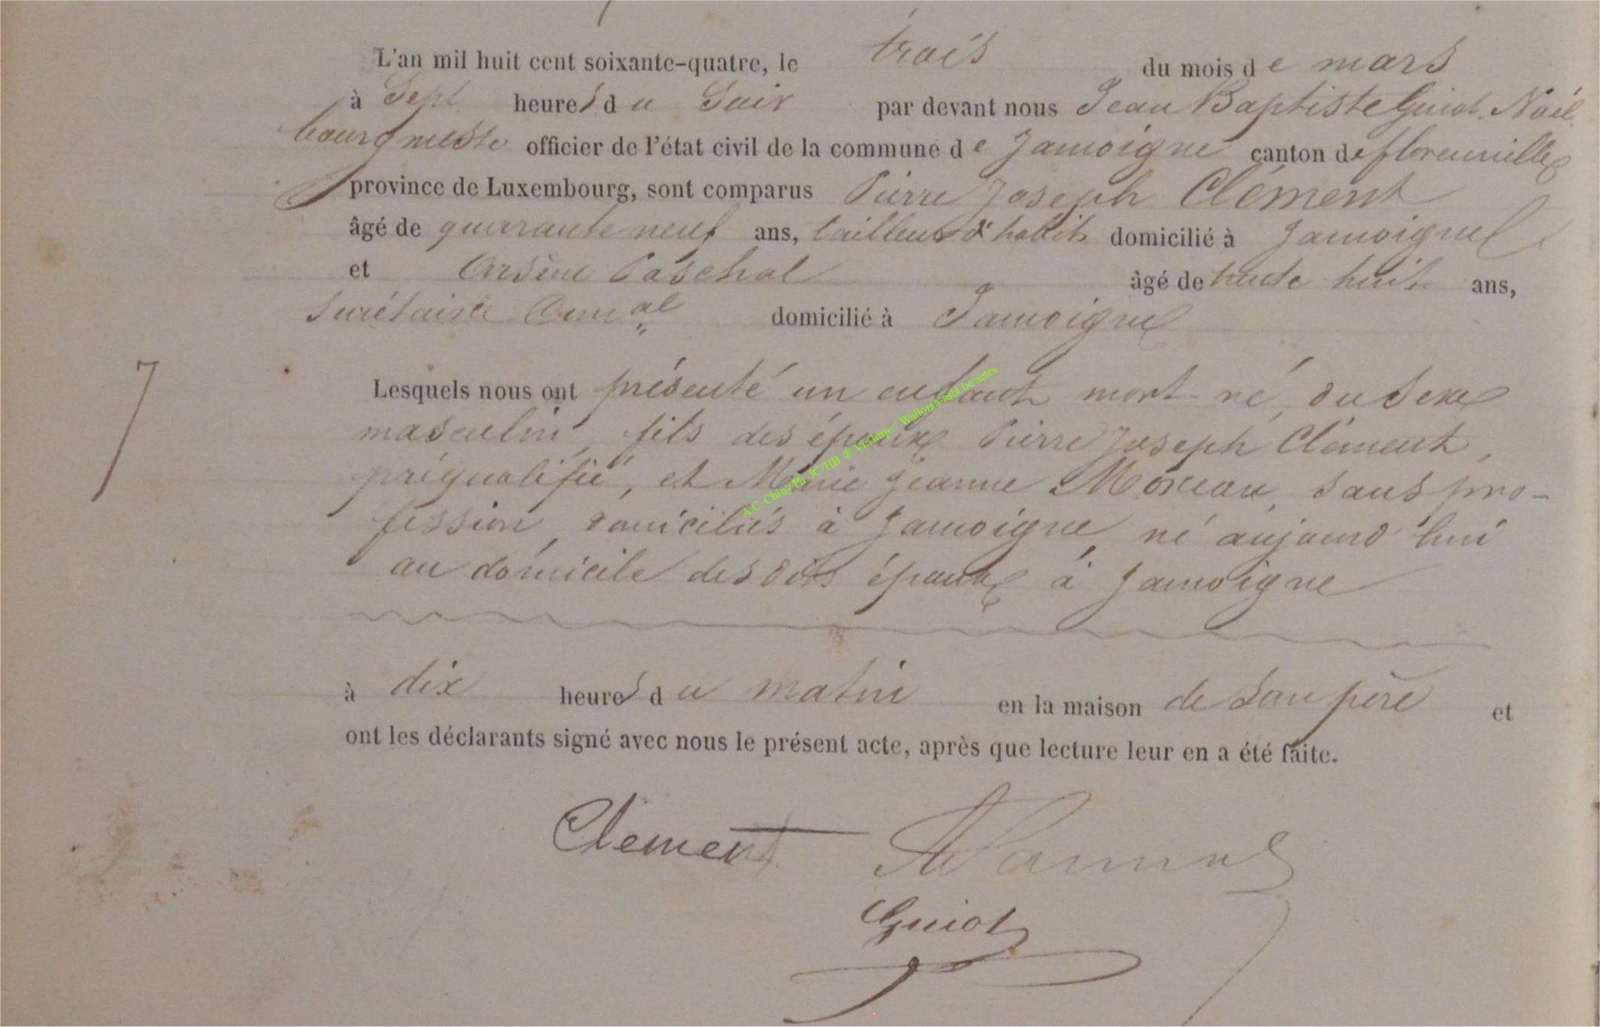 L'an mil huit cent soixante-quatre, le trois du mois de mars
à Sept heures du Soir par devant nous Jean Baptiste Guiot Noël
bourgmestre officier de l'état civil de la commune de Jamoigne canton de florenville
province de Luxembourg, sont comparus Pierre Joseph Clément
âgé de quarante neuf ans, tailleur d'habits domicilié à Jamoigne
et Arsène Paschal âgé de trente huit ans,
Secrétaire Comal domicilié à Jamoigne
7
Lesquels nous ont présenté un enfant mort-né, du Sexe
masculin, fils des époux Pierre Joseph Clément,
préqualifié, et Marie Jeanne Moreau, sans pro-
fession, domiciliés à Jamoigne, né aujourd'hui
au domicile des dits époux à Jamoigne
à dix heures du matin en la maison de Son père et
ont les déclarants signé avec nous le présent acte, après que lecture leur en a été faite.
Clement
Guiot